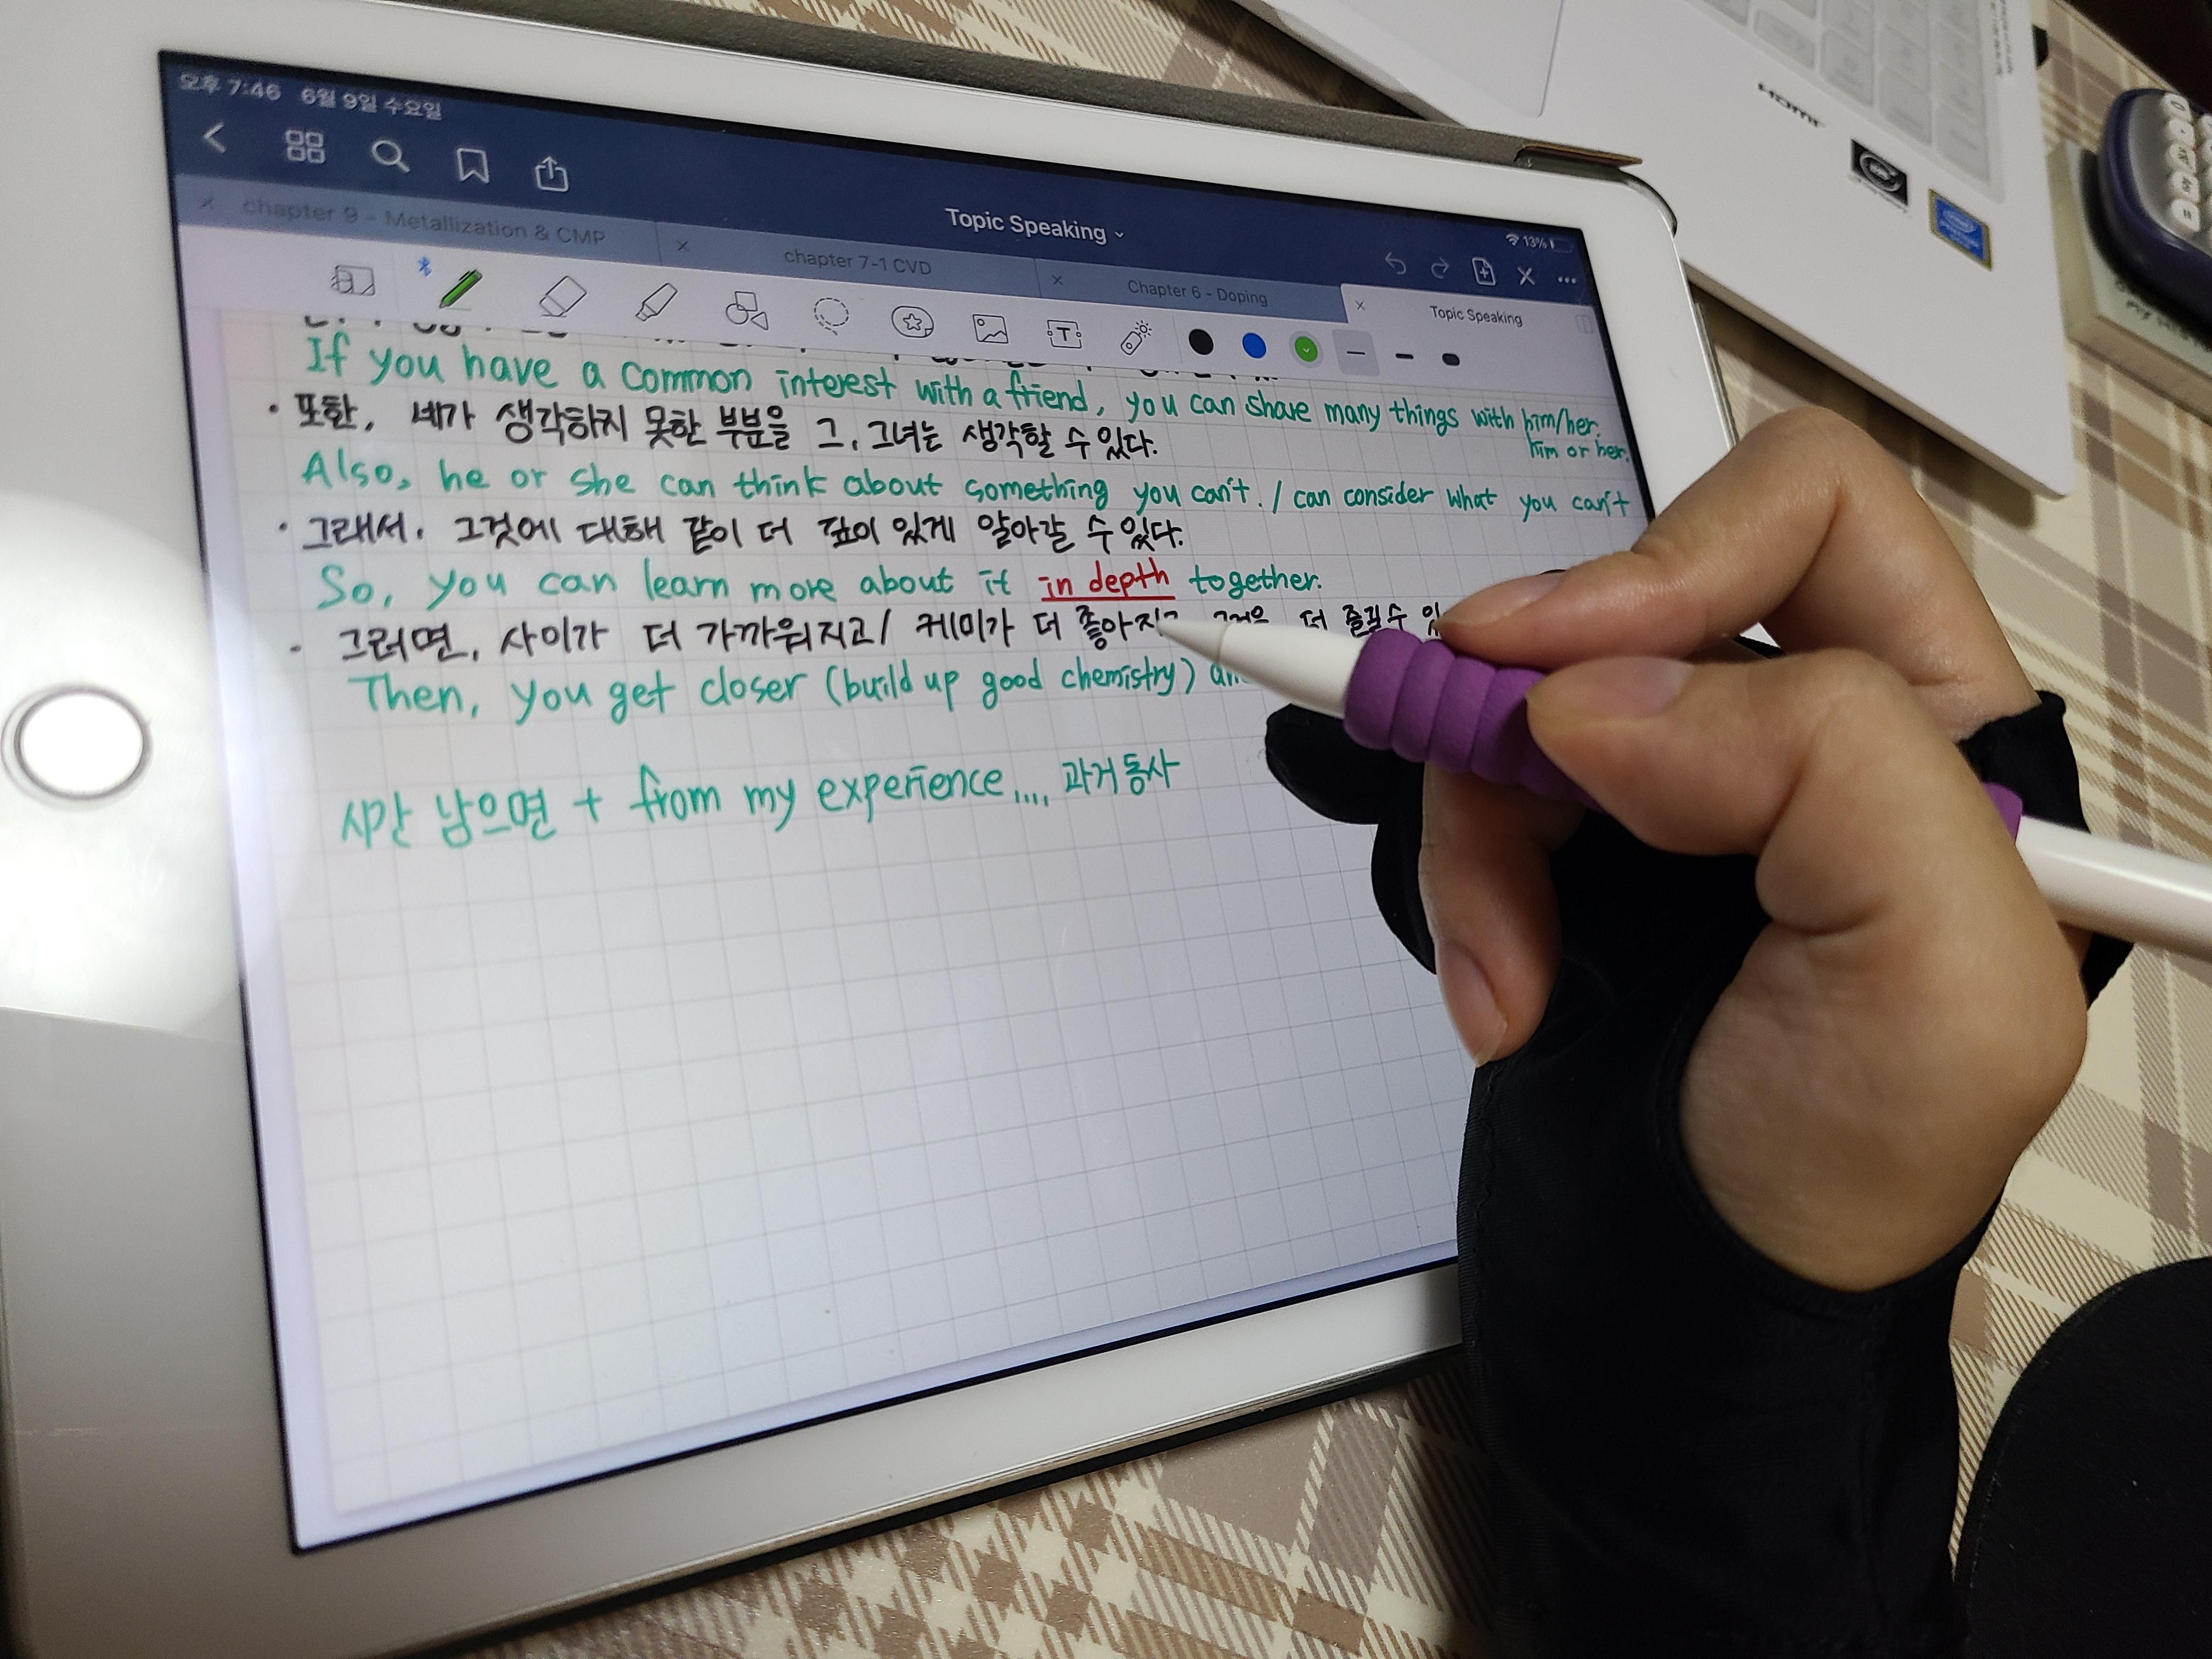 오후 7:46 6월 9일 수요일
13%
Topic Speaking
chapter 9 - Metallization & CMP
chapter 7-1 CVD
Chapter 6 - Doping
Topic Speaking
If you have a common interest with a friend, you can share many things with him/her.
him or her.
· 또한, 네가 생각하지 못한 부분을 그, 그녀는 생각할 수 있다.
Also, he or she can think about something you can't. / can consider what you can't
· 그래서, 그것에 대해 같이 더 깊이 있게 알아갈 수 있다.
So, you can learn more about it in depth together.
· 그러면, 사이가 더 가까워지고/ 케미가 더 좋아지고 더 즐길 수
Then, you get closer (build up good chemistry)
시간 남으면 + from my experience .... 과거동사
HDMI